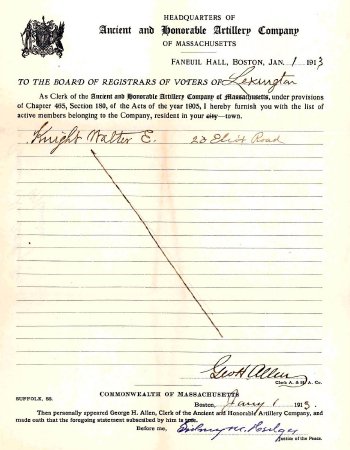 HEADQUARTERS OF
Ancient and Honorable Artillery Company
OF MASSACHUSETTS
FANEUIL HALL, BOSTON, JAN. 1 1913
TO THE BOARD OF REGISTRARS OF VOTERS OF Lexington
As Clerk of the Ancient and Honorable Artillery Company of Massachusetts, under provisions
of Chapter 465, Section 180, of the Acts of the year 1905, I hereby furnish you with the list of
active members belonging to the Company, resident in your city—town.
Knight Walter E. 23 Eliot Road
Geo H Allen
Clerk A. & H. A. Co.
COMMONWEALTH OF MASSACHUSETTS
SUFFOLK, SS. Boston, Jany 1 1913.
Then personally appeared George H. Allen, Clerk of the Ancient and Honorable Artillery Company, and
made oath that the foregoing statement subscribed by him is true.
Before me, Sidney M. Hedges
Justice of the Peace.